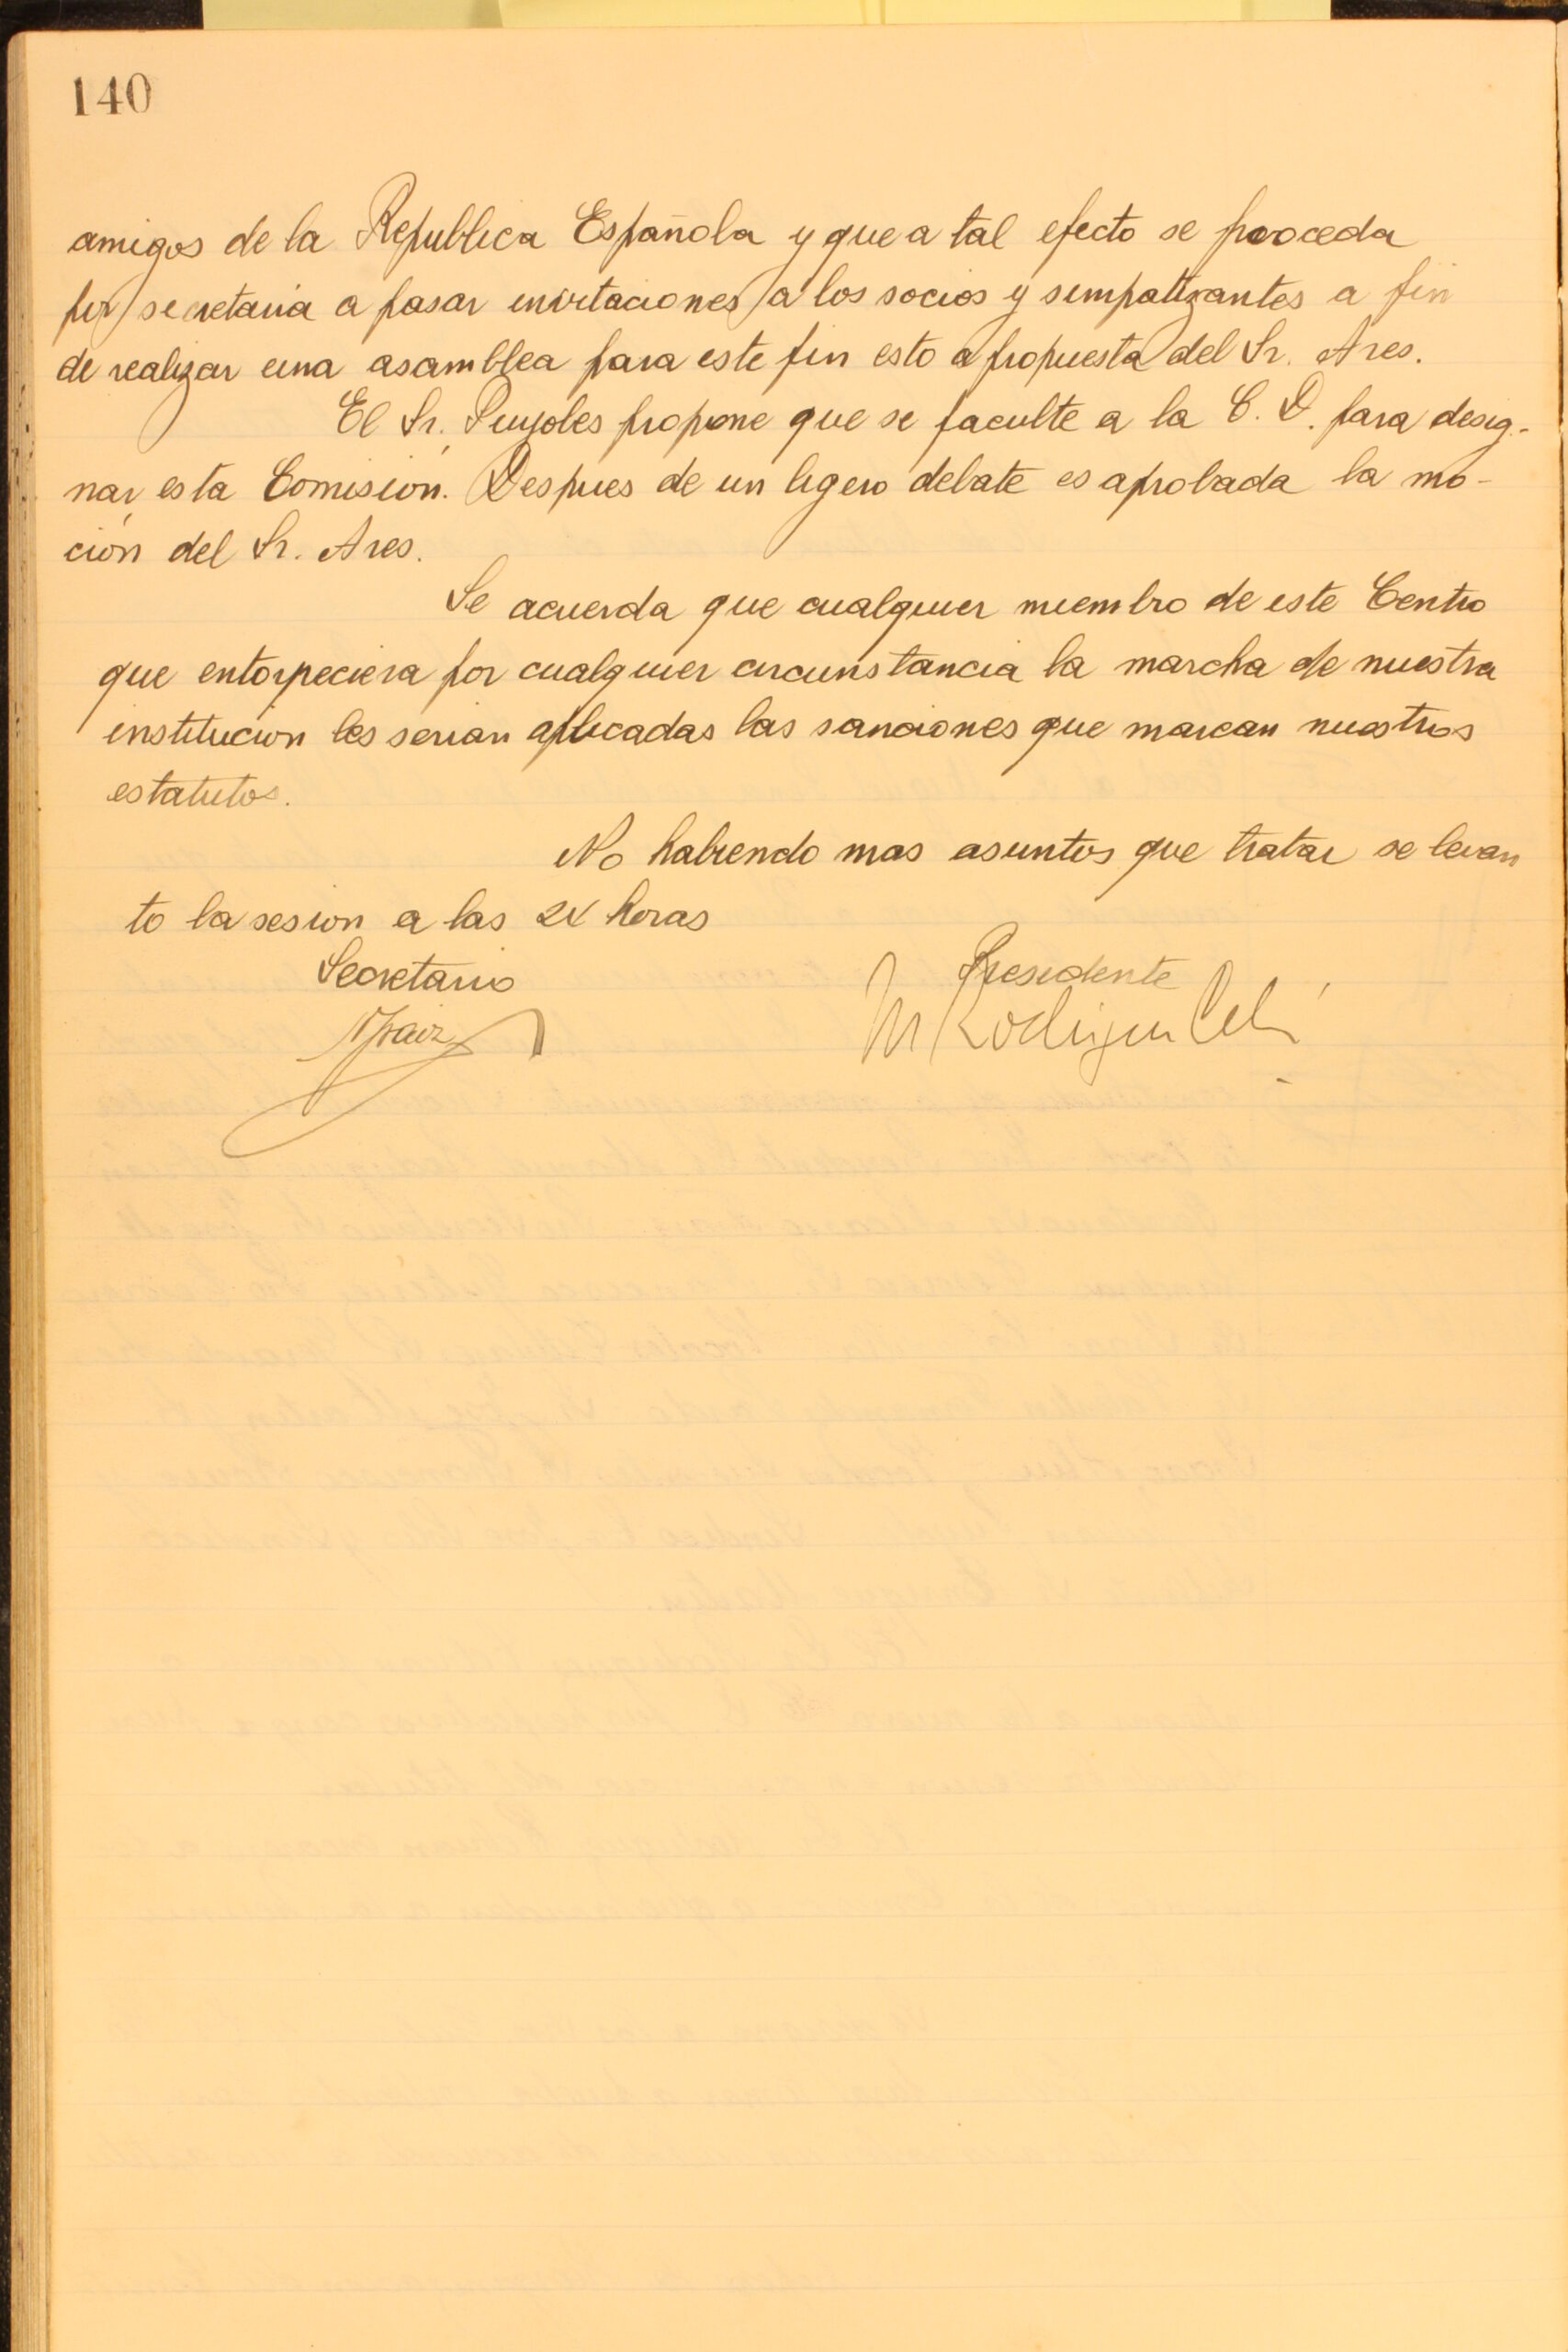 140
amigos de la Republica Española y que a tal efecto se proceda
por secretaria a pasar invitaciones a los socios y simpatizantes a fin
de realizar una asamblea para este fin esto a propuesta del Sr. Ares.
El Sr. Puyoles propone que se faculte a la C. D. para desig-
nar esta Comisión. Despues de un ligero debate es aprobada la mo-
ción del Sr. Ares.
Se acuerda que cualquier miembro de este Centro
que entorpeciera por cualquier circunstancia la marcha de nuestra
institucion les serian aplicadas las sanciones que marcan nuestros
estatutos.
No habiendo mas asuntos que tratar se levan
to la sesion a las horas
Secretario
Presidente
M Rodriguez